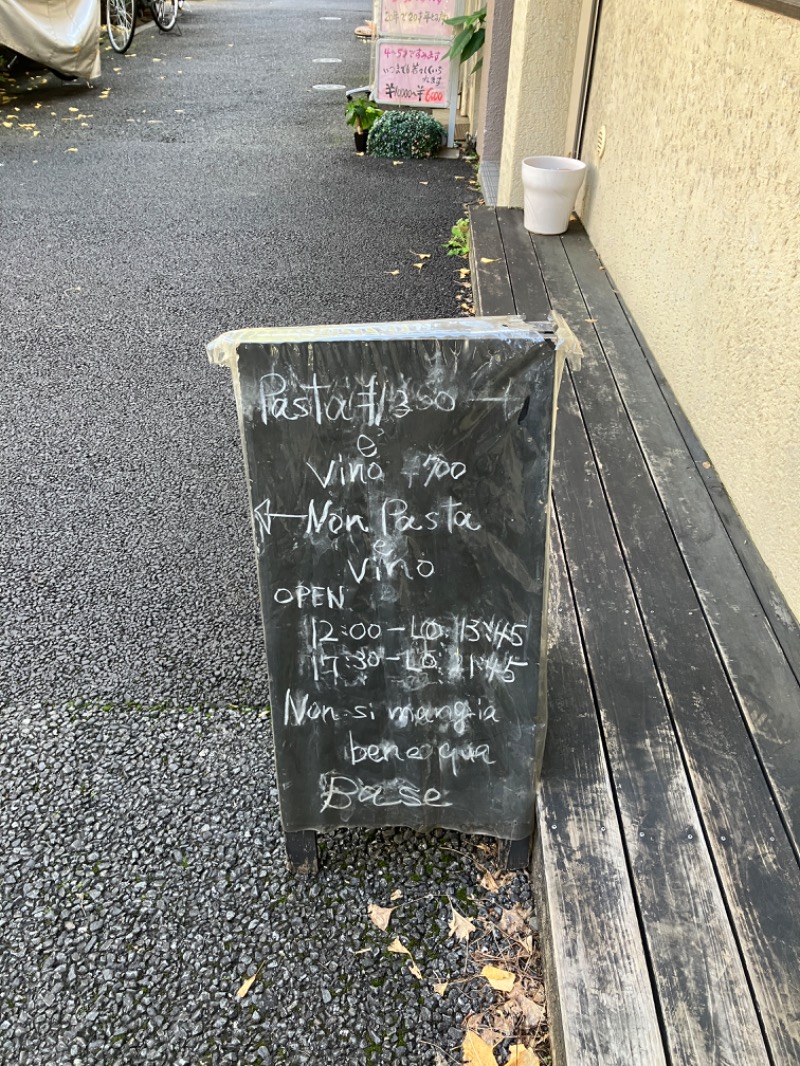 4~5までみます
¥1,000~¥6,000
Pasta ¥1,350
e
vino ¥700
Non Pasta
e
vino
OPEN
12:00-LO. 13:45
17:30-LO. 21:45
Non si mangia
bene qua
Base